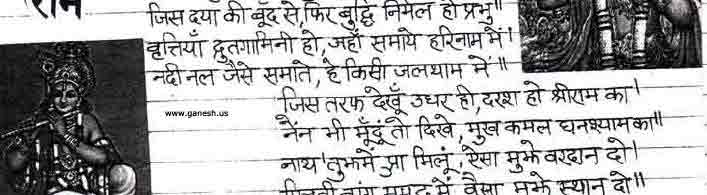 राम
जिस दया की बूँद से, फिर बुद्धि निर्मल हो प्रभु॥
वृत्तियाँ द्रुतगामिनी हो, जहाँ समाये हरिनाम में।
नदी नल जैसे समाते, हे किसी जलधाम में॥
www.ganesh.us
जिस तरफ देखूँ उधर ही, दरश हो श्रीराम का।
नैंन भी मूँदूं तो दिखे, मुख कमल घनश्याम का॥
नाथ तुझमें प्रा मिलूं, ऐसा मुझे वरदान दो।
में वैसा मुझे स्थान दो॥